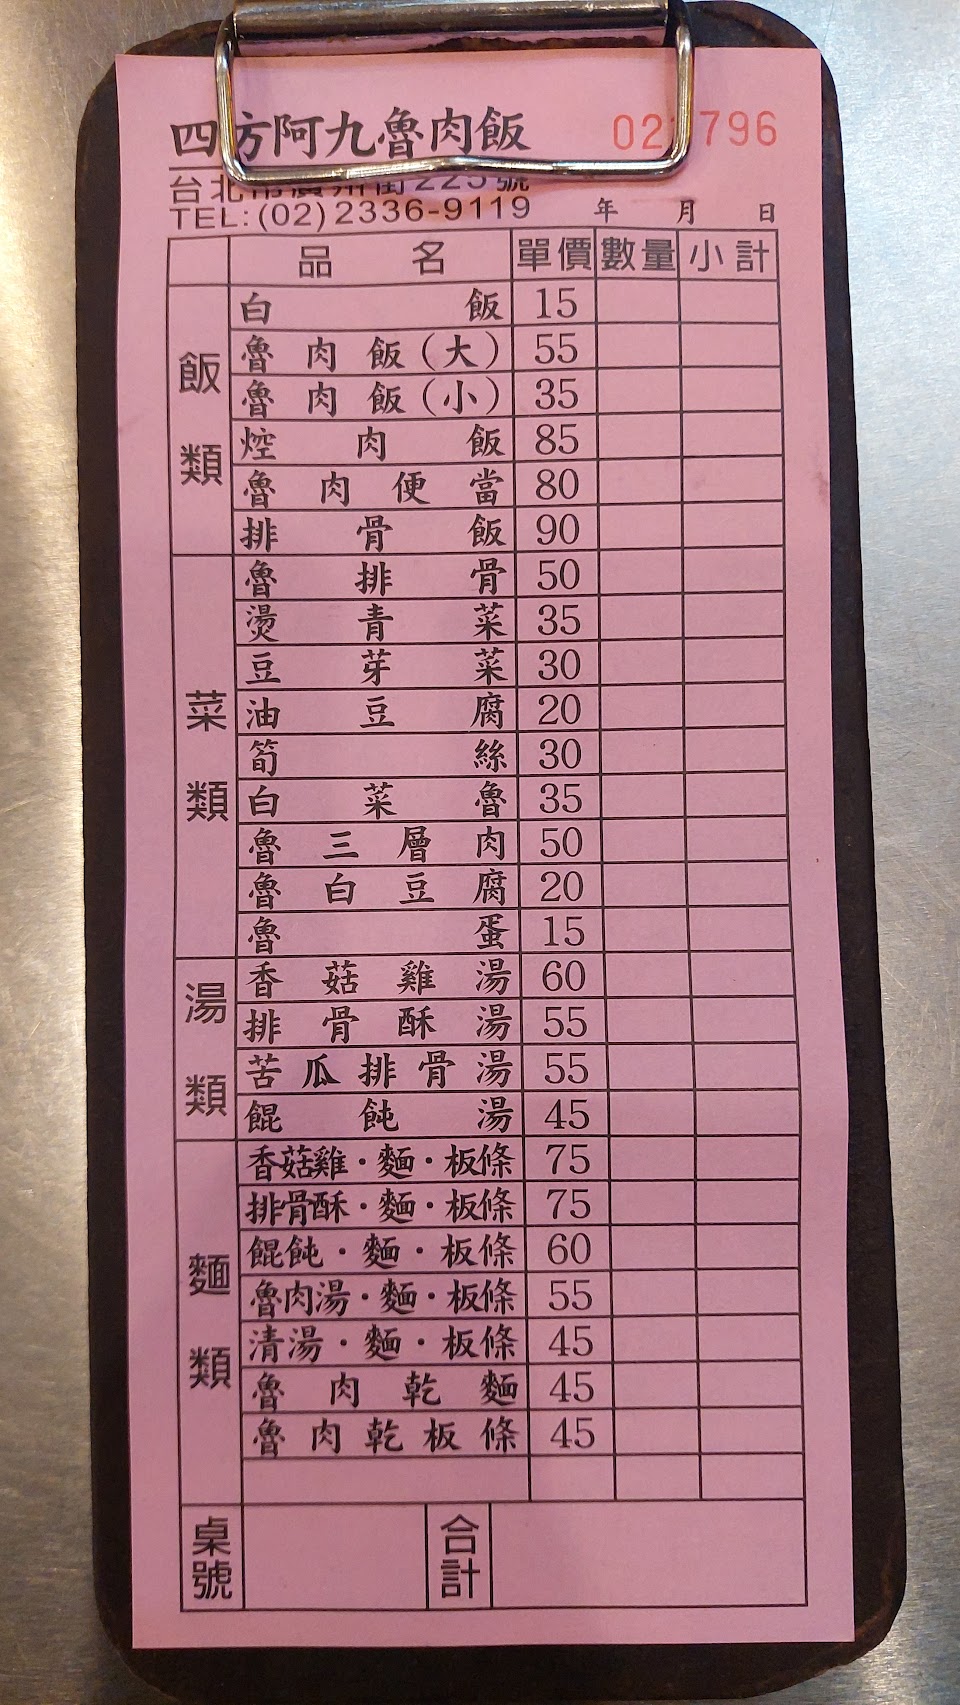 四方阿九魯肉飯 02 796
台北市廣州街225號
TEL:(02)2336-9119 年 月 日
品名 單價 數量 小計
飯類
白飯 15
魯肉飯(大) 55
魯肉飯(小) 35
焢肉飯 85
魯肉便當 80
排骨飯 90
菜類
魯排骨 50
燙青菜 35
豆芽菜 30
油豆腐 20
筍絲 30
白菜魯 35
魯三層肉 50
魯白豆腐 20
魯蛋 15
湯類
香菇雞湯 60
排骨酥湯 55
苦瓜排骨湯 55
餛飩湯 45
麵類
香菇雞·麵·板條 75
排骨酥·麵·板條 75
餛飩·麵·板條 60
魯肉湯·麵·板條 55
清湯·麵·板條 45
魯肉乾麵 45
魯肉乾板條 45
桌號 合計